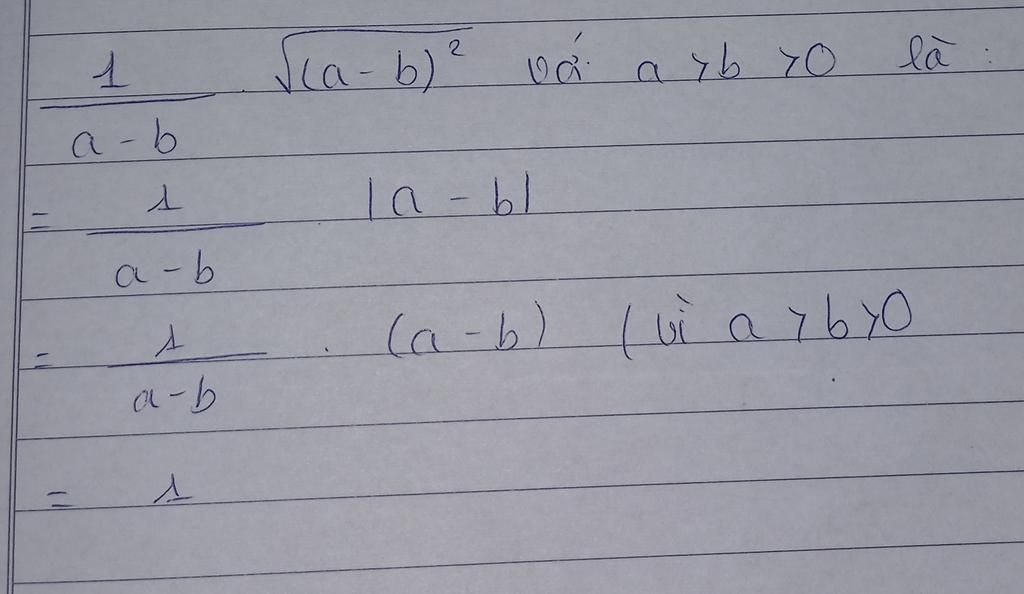 1/(a-b) . √(a-b)² với a > b > 0 là :
= 1/(a-b) |a-b|
= 1/(a-b) . (a-b) (vì a > b > 0
= 1